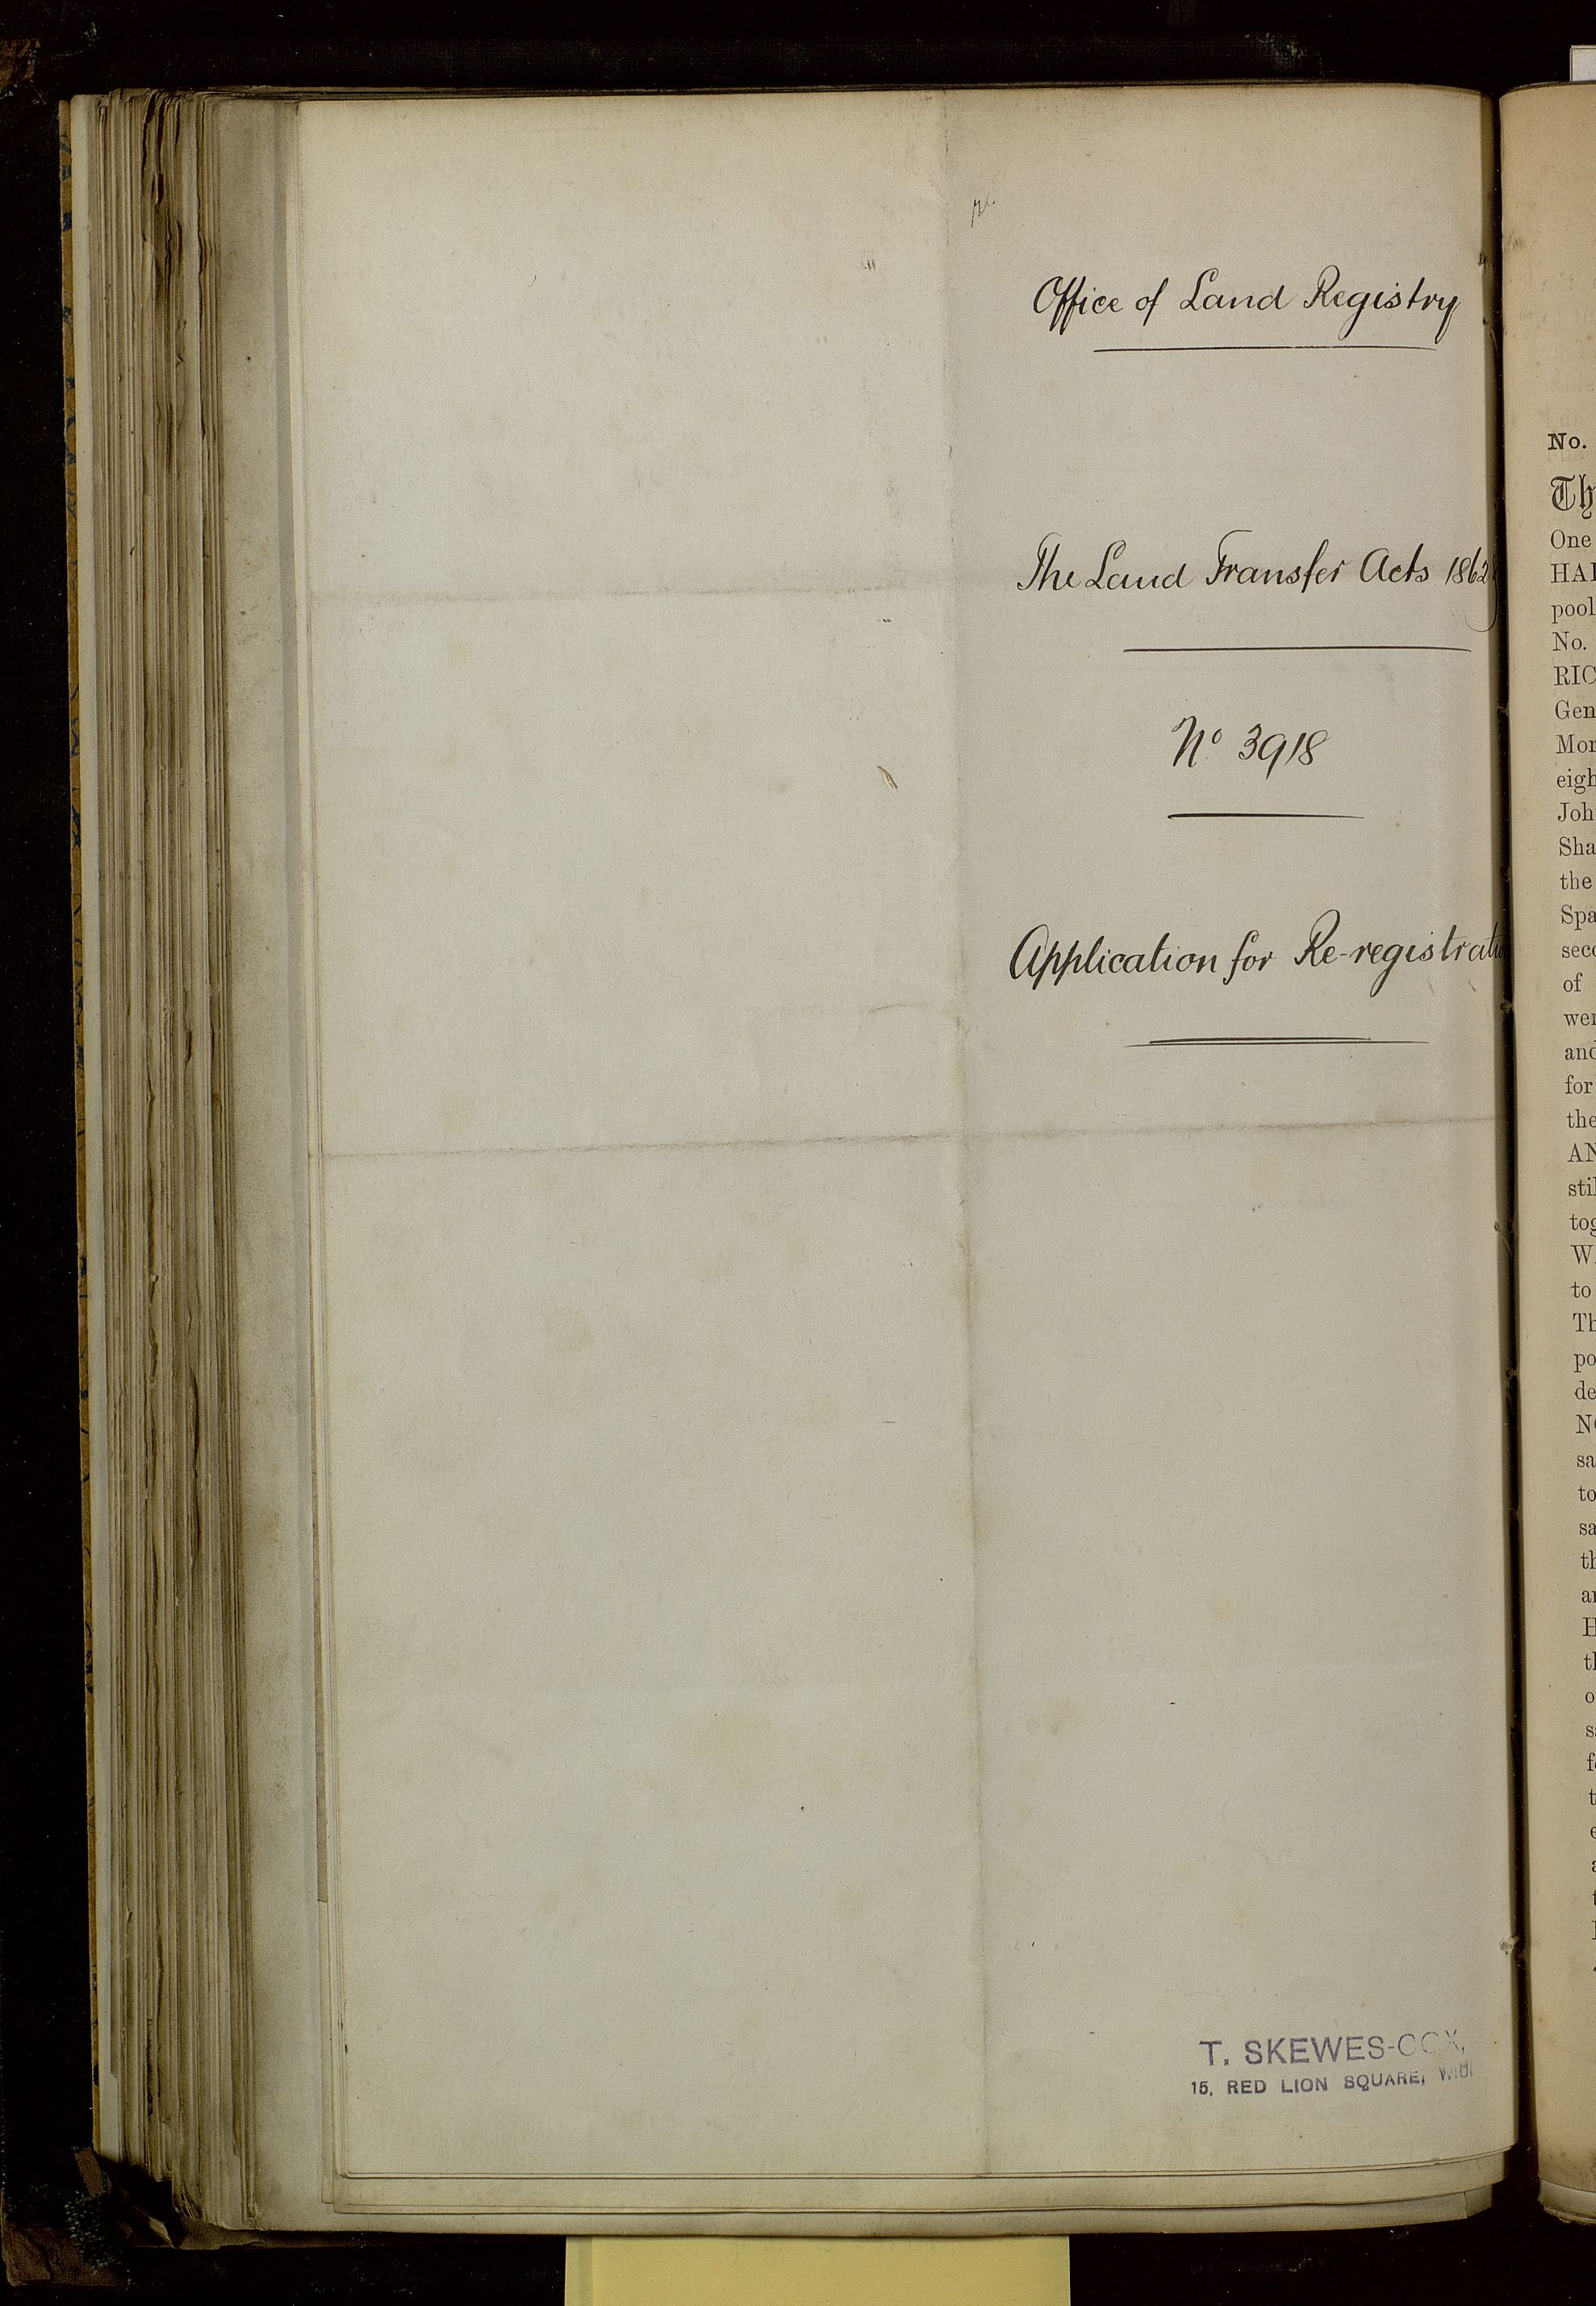 Office of Land Registry
The Land Transfer Acts 1862
No 3918
Application for Re-registratio
T. SKEWES-COX,
15, RED LION SQUARE,
No.
Th
One
HAR
pool
No.
RIC
Gen
Mor
eigh
Joh
Sha
the
Spa
seco
of
wer
and
for
the
AN
stil
tog
W
to
Th
po
de
NO
sa
to
sa
th
an
H
th
o
s
f
t
e
a
t